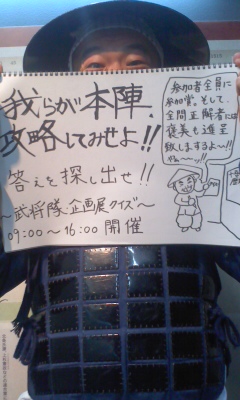 我らが本陣、
攻略してみせよ!!
答えを探し出せ!!
〜武将隊企画展クイズ〜
09:00〜16:00 開催
参加者全員に
参加賞。そして、
全問正解者には
褒美も進呈
致しまするよ〜!!